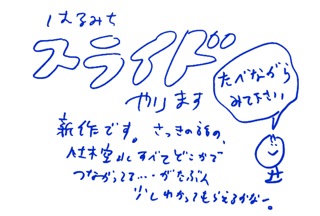 はるみち
スライド
やります
たべながら
みて下さい
新作です。さっきの3の、
仕末室ル すべてどこかで
つながってて…がたぶん
少しわかってもらえるかなー。